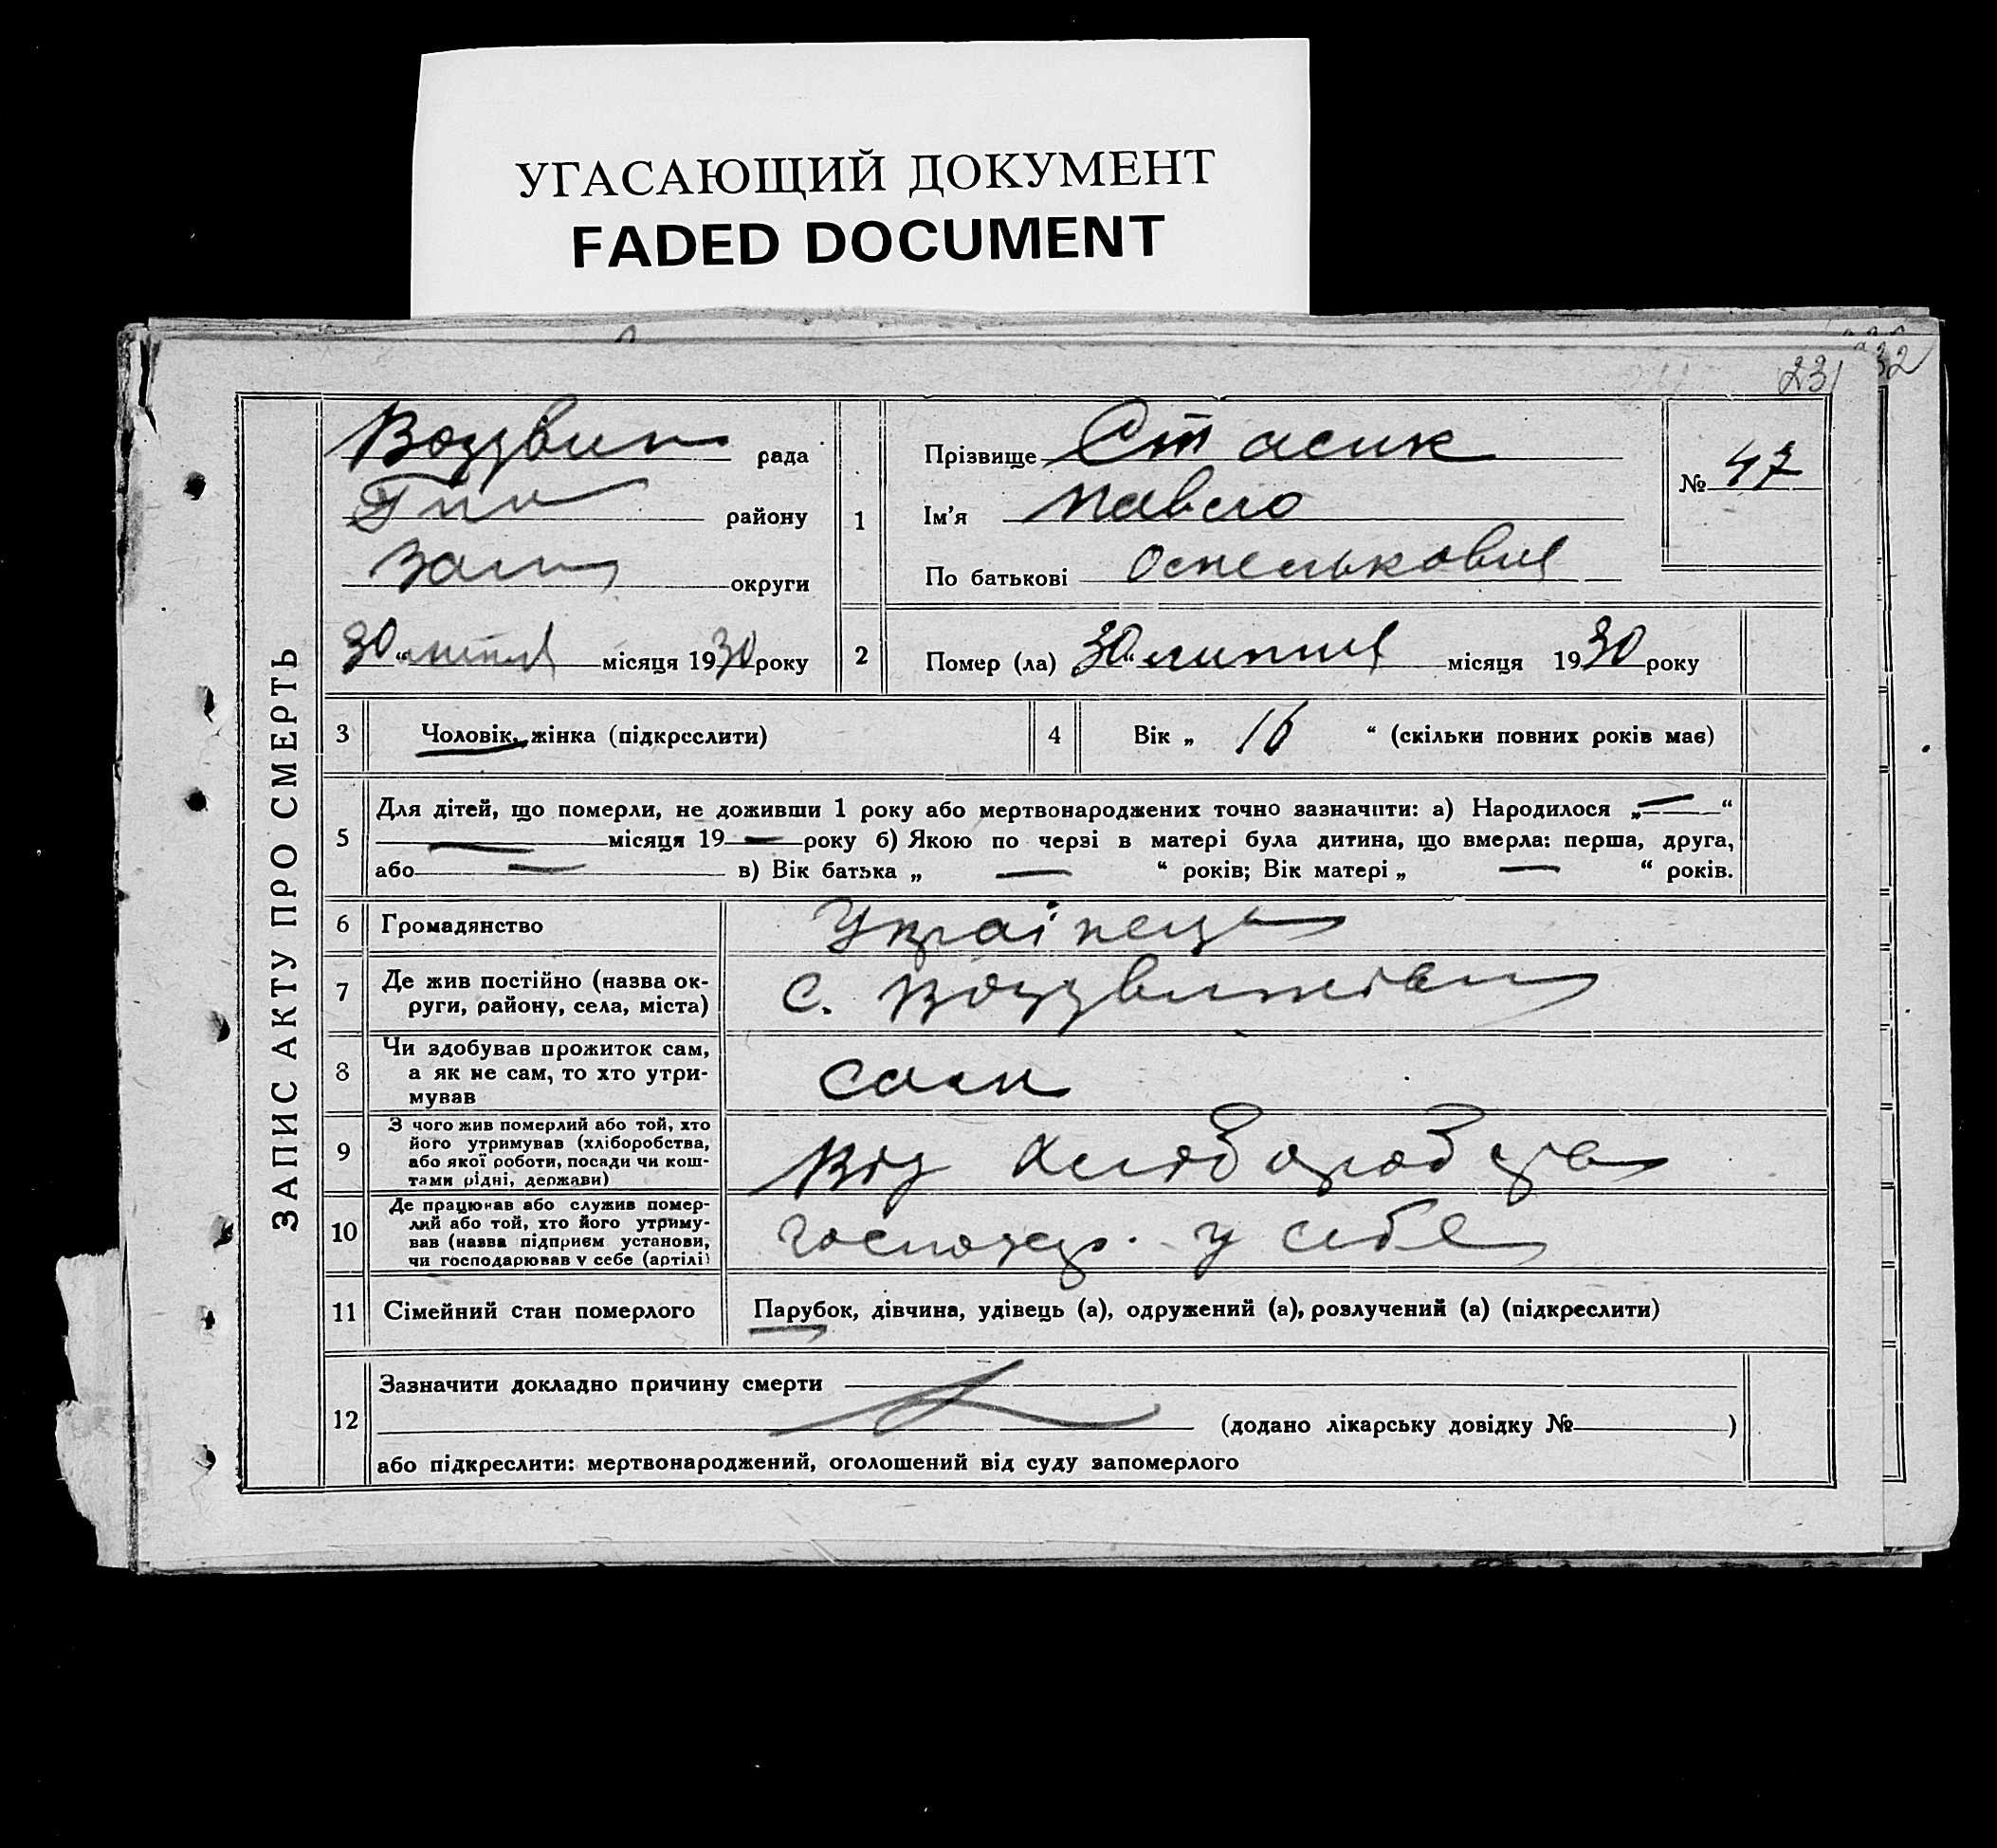 УГАСАЮЩИЙ ДОКУМЕНТ
FADED DOCUMENT
232
231
ЗАПИС АКТУ ПРО СМЕРТЬ
Воздвиж рада
району
округи
30 „ липня місяця 1930 року
1
Прізвище Стасик
Ім'я Павло
По батькові
№ 47
2
Помер (ла) 30 „ липня місяця 1930 року
3 Чоловік, жінка (підкреслити)
4 Вік „ 16 “ (скільки повних років має)
5
Для дітей, що померли, не доживши 1 року або мертвонароджених точно зазначити: а) Народилося „—“
— місяця 19 — року б) Якою по черзі в матері була дитина, що вмерла: перша, друга,
або — в) Вік батька „ — “ років; Вік матері „ — “ років.
6 Громадянство Українець
7 Де жив постійно (назва ок-
руги, району, села, міста) с. Воздвижівка
8 Чи здобував прожиток сам,
а як не сам, то хто утри-
мував
сам
9 З чого жив померлий або той, хто
його утримував (хліборобства,
або якої роботи, посади чи кош-
тами рідні, держави)
Від хліборобства
10 Де працював або служив помер-
лий або той, хто його утриму-
вав (назва підприєм установи,
чи господарював у себе (артілі)
господар. у себе
11 Сімейний стан померлого Парубок, дівчина, удівець (а), одружений (а), розлучений (а) (підкреслити)
12 Зазначити докладно причину смерти
(додано лікарську довідку № )
або підкреслити: мертвонароджений, оголошений від суду запомерлого